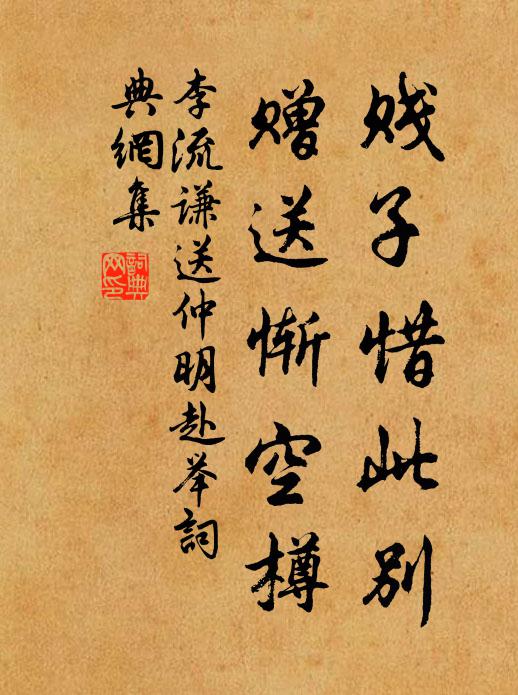 贱子惜此别
赠送惭空樽
李流谦送仲明赴举詞
典網集
詞典
网印